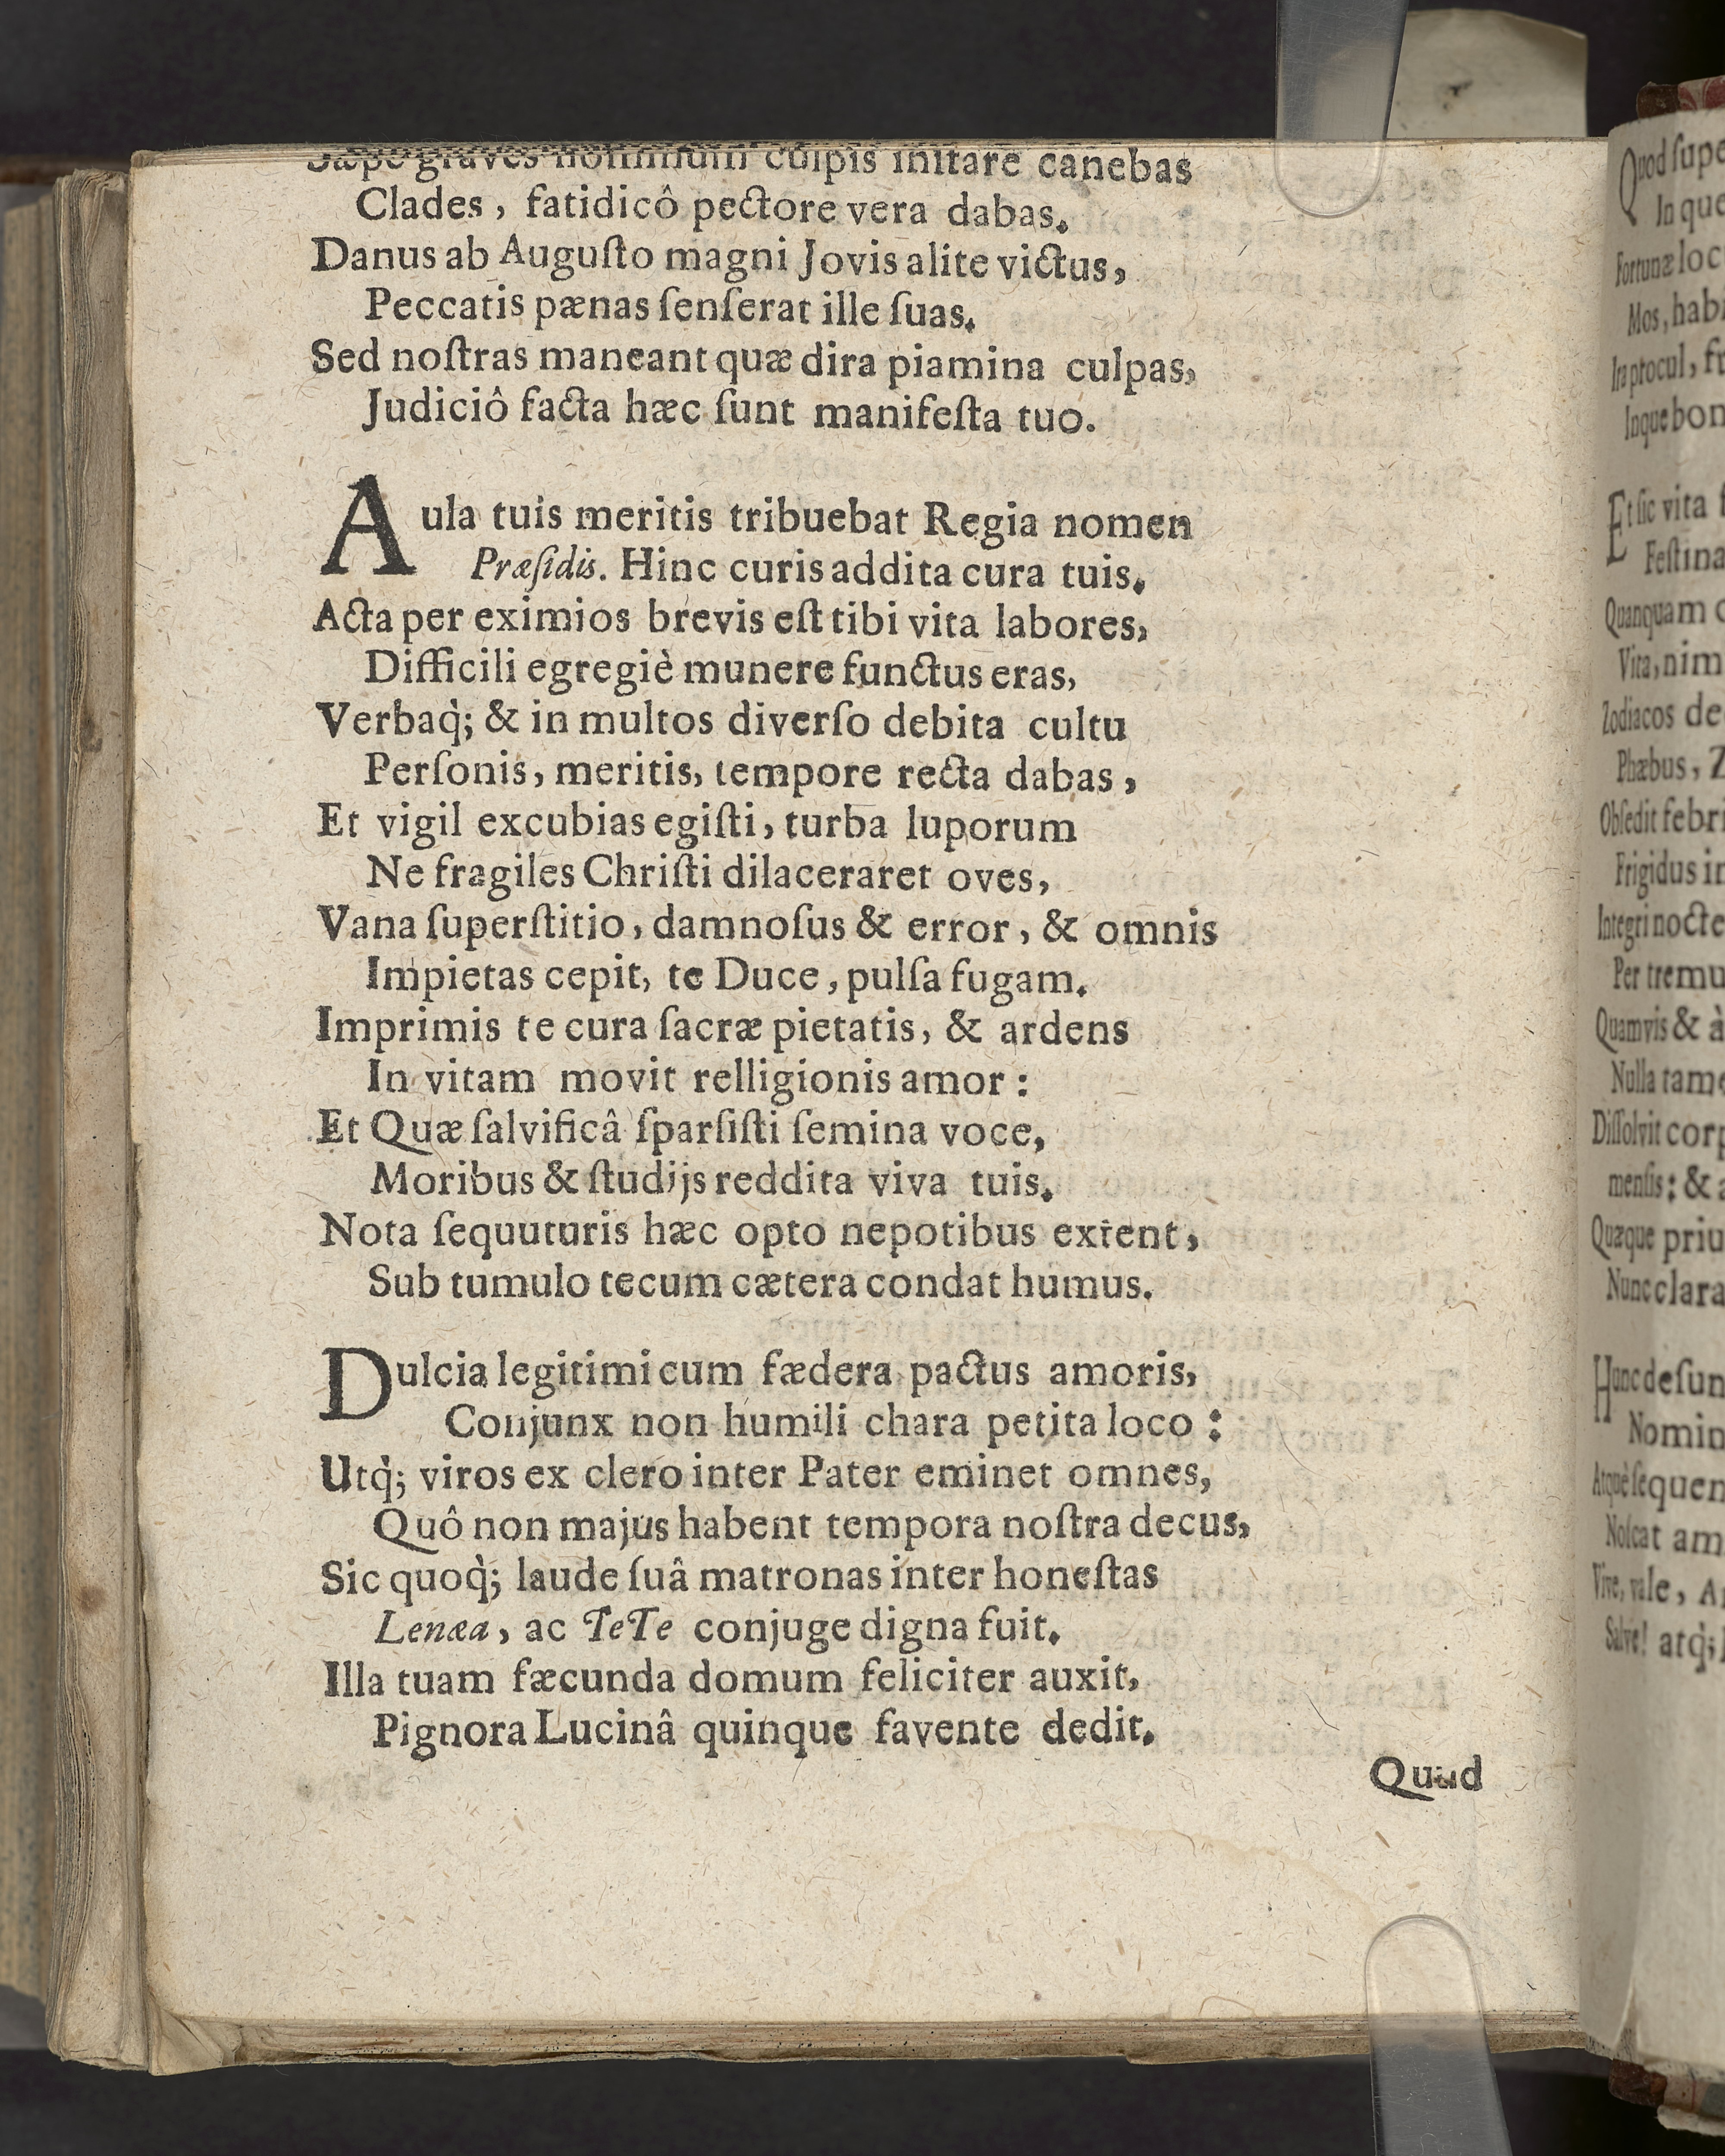 Sæpe graves hominum culpis inſtare canebas
Clades, fatidicô pectore vera dabas.
Danus ab Auguſto magni Jovis alite victus,
Peccatis pænas ſenſerat ille ſuas.
Sed noſtras maneant quæ dira piamina culpas,
Judiciô facta hæc ſunt manifeſta tuo.
Aula tuis meritis tribuebat Regia nomen
Præſidis. Hinc curis addita cura tuis.
Acta per eximios brevis eſt tibi vita labores,
Difficili egregiè munere functus eras,
Verbaq̀; & in multos diverſo debita cultu
Perſonis, meritis, tempore recta dabas,
Et vigil excubias egiſti, turba luporum
Ne fragiles Chriſti dilaceraret oves,
Vana ſuperſtitio, damnoſus & error, & omnis
Impietas cepit, te Duce, pulſa fugam.
Imprimis te cura ſacræ pietatis, & ardens
In vitam movit relligionis amor:
Et Quæ ſalvificâ ſparſiſti ſemina voce,
Moribus & ſtudijs reddita viva tuis.
Nota ſequuturis hæc opto nepotibus extent,
Sub tumulo tecum cætera condat humus.
Dulcia legitimi cum fædera pactus amoris,
Conjunx non humili chara petita loco:
Utq̀; viros ex clero inter Pater eminet omnes,
Quô non majus habent tempora noſtra decus,
Sic quoq̀; laude ſuâ matronas inter honeſtas
Lenæa, ac TeTe conjuge digna fuit.
Illa tuam fæcunda domum feliciter auxit,
Pignora Lucinâ quinque favente dedit.
Quod ſupe
In que
Fortunæ loc
Mos, hab
In procul, fr
Inque bon
Et ſic vita
Feſtina
Quanquam
Vita, nim
Zodiacos de
Phæbus, Z
Obſedit febri
Frigidus in
Integri nocte
Per tremu
Quamvis & à
Nulla tame
Diſſolvit corp
menſis: & a
Quæque priu
Nunc clara
Hunc defun
Nomin
Atquè ſequen
Noſcat am
Vive, vale, A
Salve! atq̀;